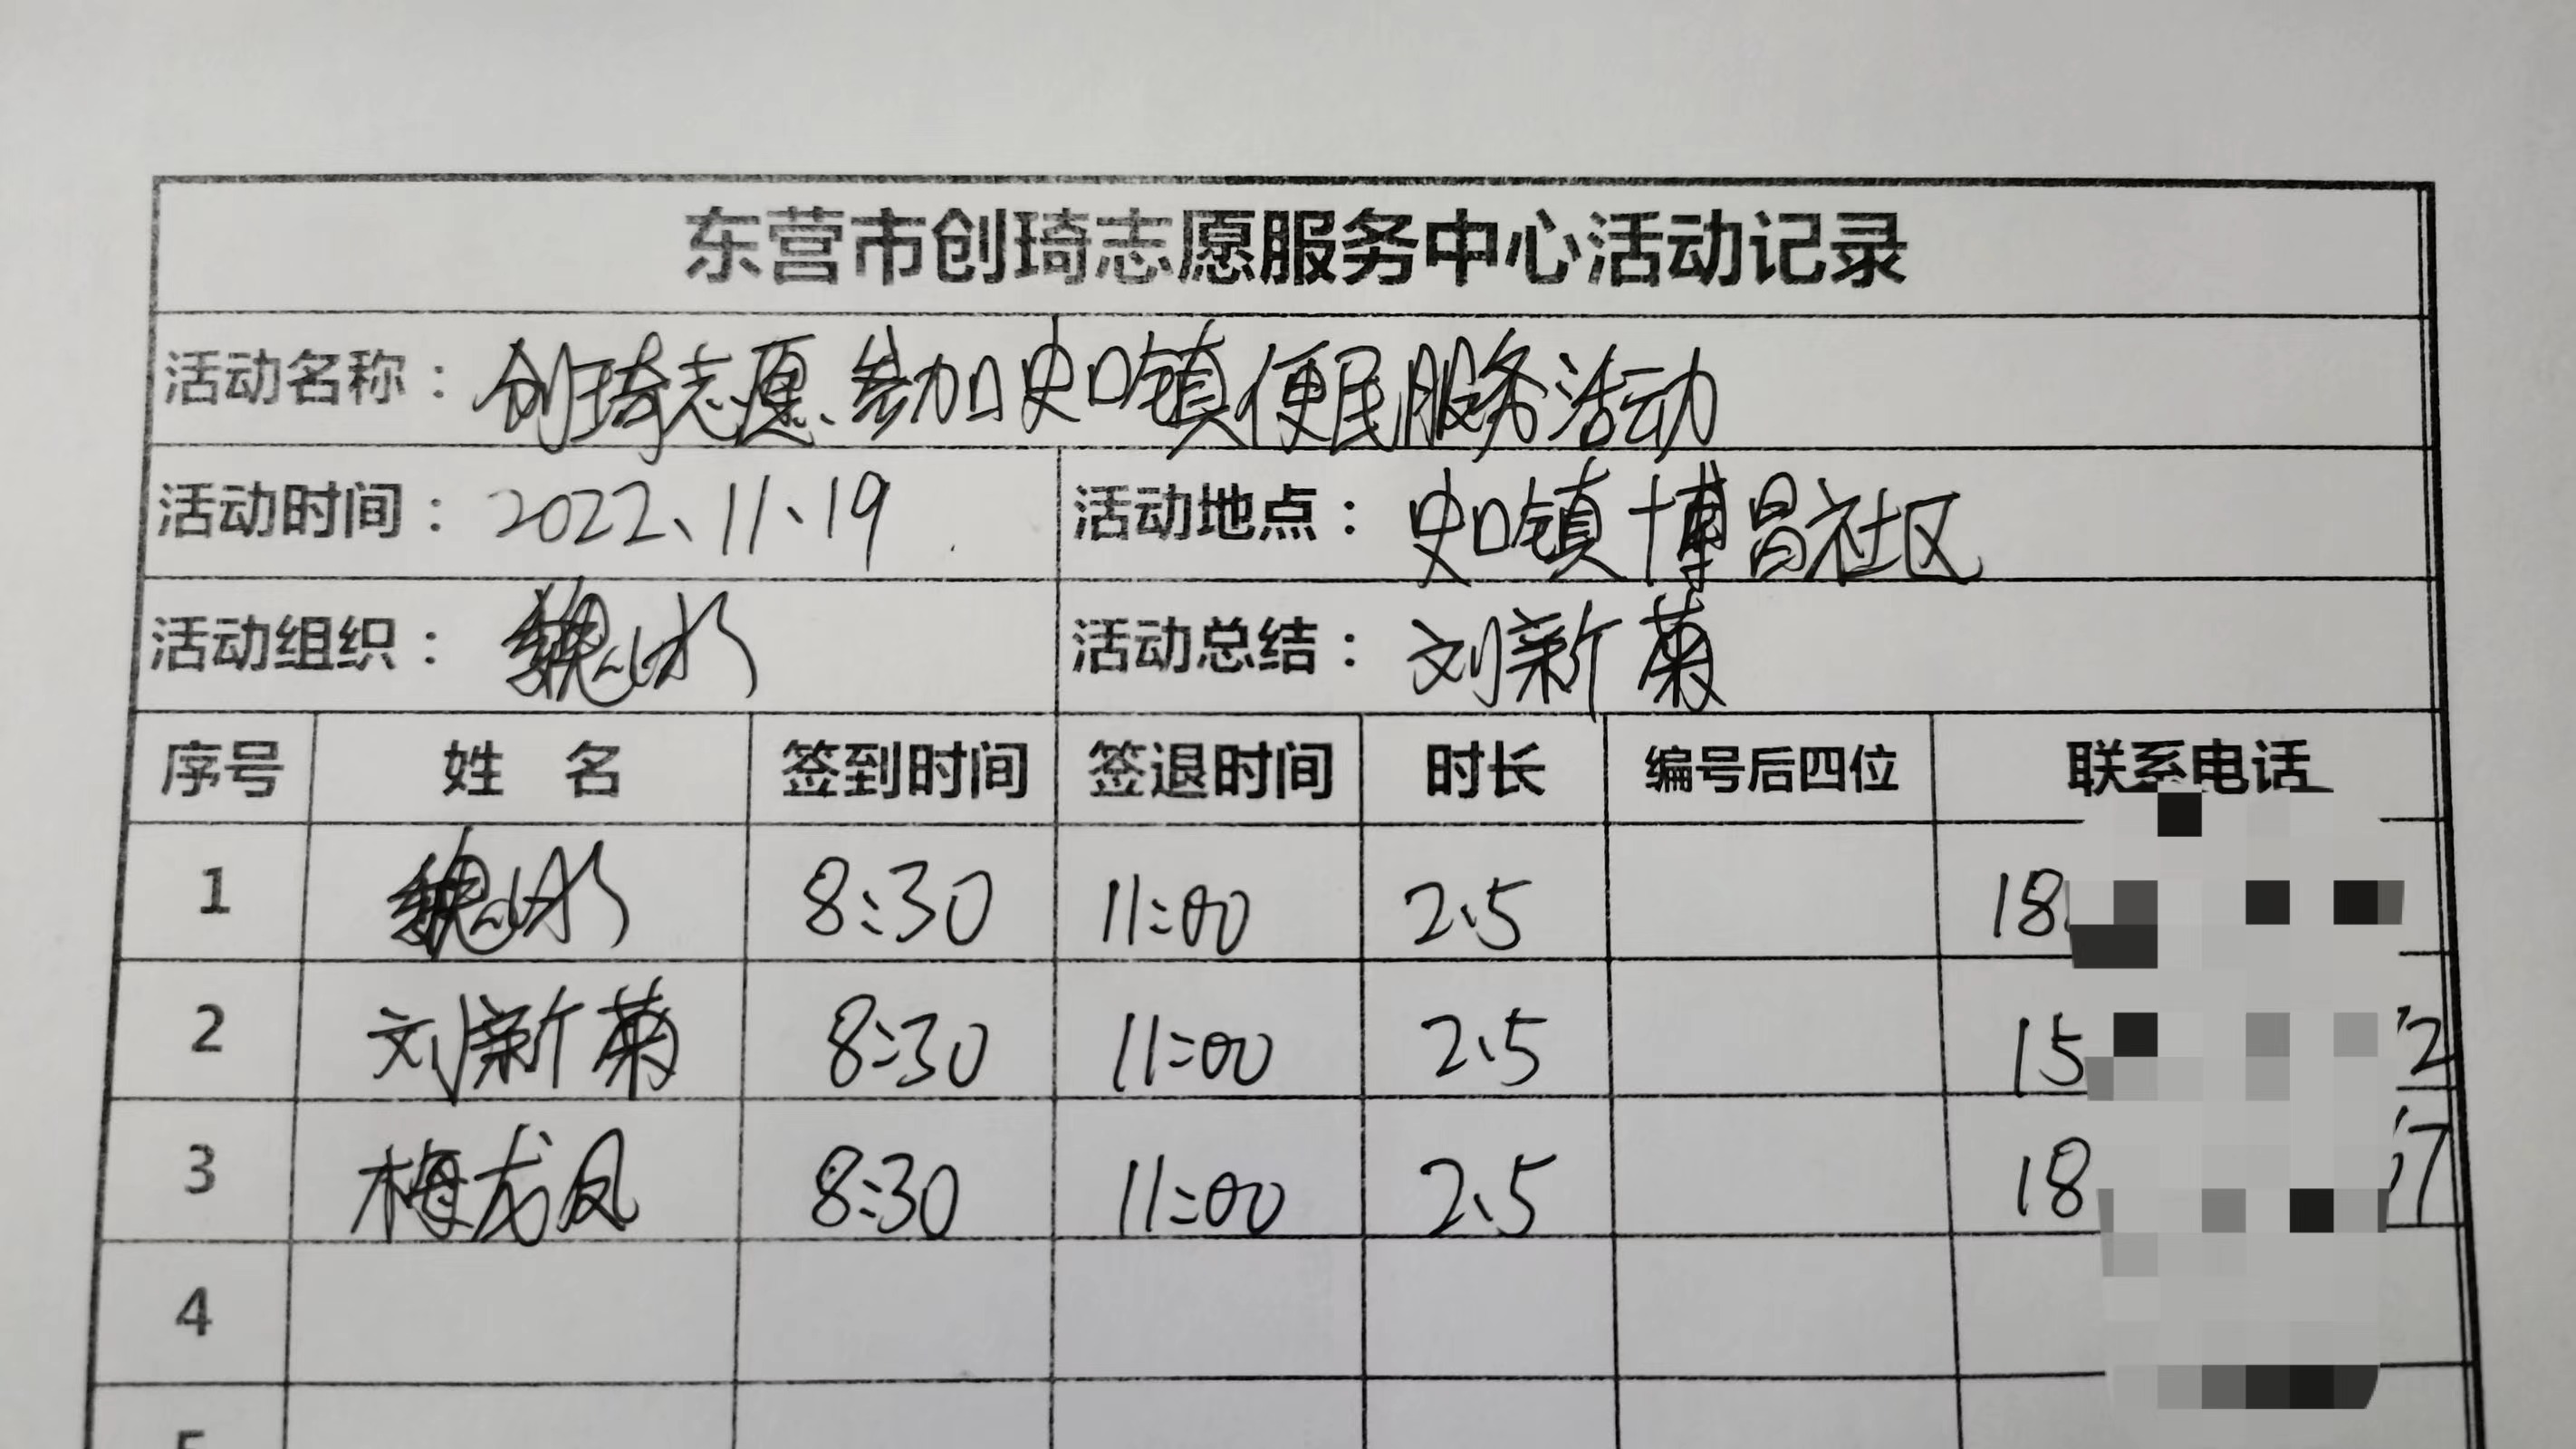 东营市创琦志愿服务中心活动记录
活动名称：创琦志愿、参加史口镇便民服务活动
活动时间：2022、11、19 活动地点：史口镇博昌社区
活动组织：魏 活动总结：刘新菊
序号 姓 名 签到时间 签退时间 时长 编号后四位 联系电话
1 魏 8:30 11:00 2.5 18
2 刘新菊 8:30 11:00 2.5 15 2
3 梅龙凤 8:30 11:00 2.5 18 7
4